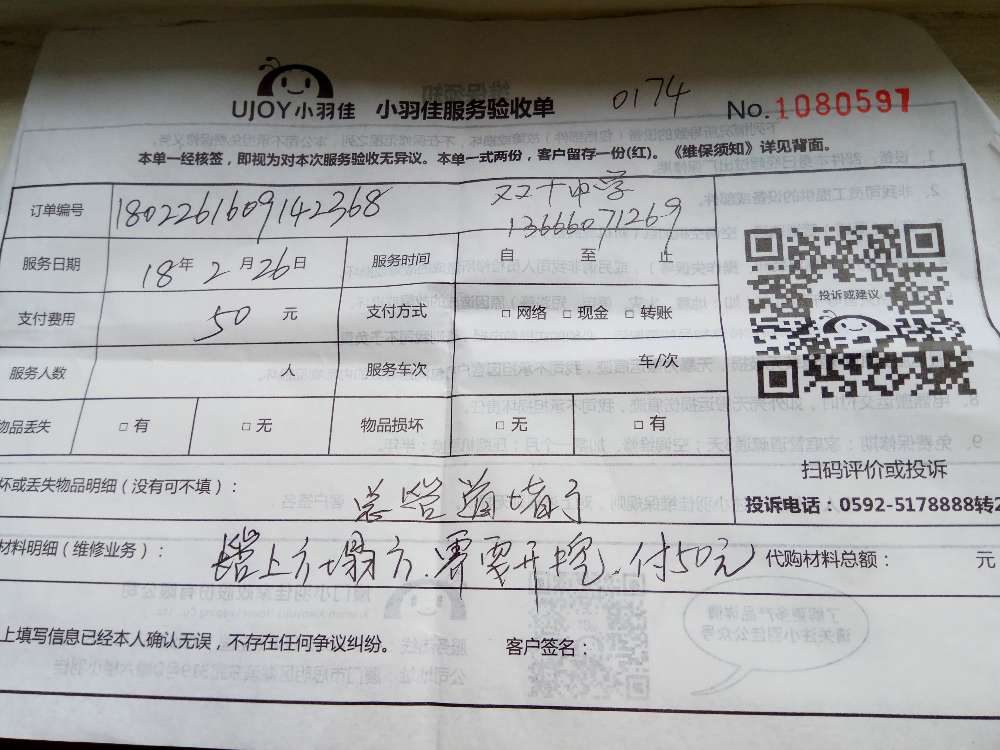 UJOY小羽佳 小羽佳服务验收单 0174 No.1080597
本单一经核签，即视为对本次服务验收无异议。本单一式两份，客户留存一份(红)。《维保须知》详见背面。
订单编号 1802261609142368 双十中学
13666071269
服务日期 18年2月26日 服务时间 自 至 止
支付费用 50元 支付方式 □网络 □现金 □转账
投诉或建议
服务人数 人 服务车次 车/次
物品丢失 □有 □无 物品损坏 □无 □有
扫码评价或投诉
坏或丢失物品明细（没有可不填）： 总管道堵了
投诉电话：0592-5178888转2
材料明细（维修业务）： 路上方塌方.需要开挖.付50元 代购材料总额： 元
上填写信息已经本人确认无误，不存在任何争议纠纷。 客户签名：